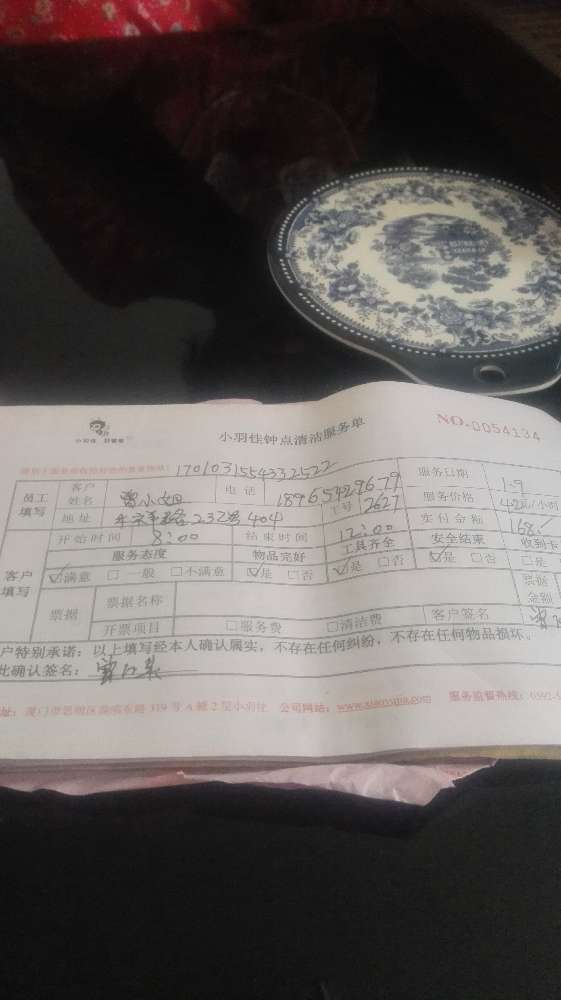 小羽佳 好管家
小羽佳钟点清洁服务单
NO.0054134
1701031554332522
员工填写 客户姓名 曾小姐 电话 18965429679 服务日期 1.9
地址 232号404 工号 2627 服务价格 42元/小时
客户填写 开始时间 8:00 结束时间 12:00 实付金额 168/
服务态度 物品完好 工具齐全 安全结束 收到卡
☑满意 □一般 □不满意 ☑是 □否 ☑是 □否 ☑是 □否 □是
票据 票据名称 票据金额
开票项目 □服务费 □清洁费 客户签名 曾
户特别承诺：以上填写经本人确认属实，不存在任何纠纷，不存在任何物品损坏。
此确认签名：
址：厦门市思明区 339号A幢2层小羽佳 公司网站： 服务监督热线：0592-5